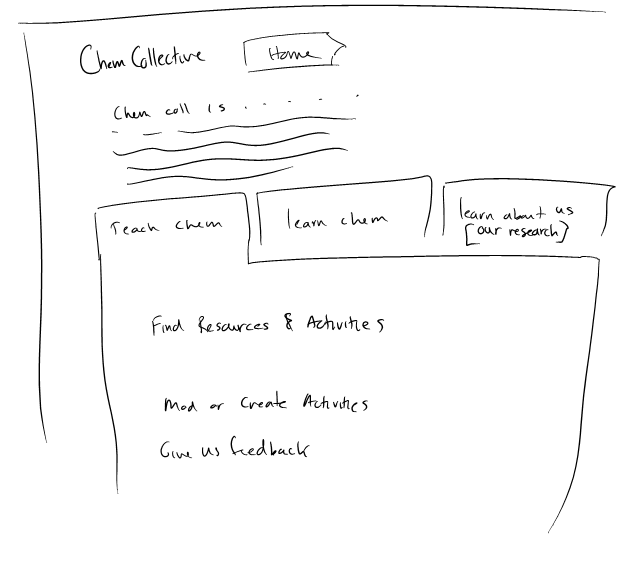 Chem Collective
Home
Chem coll is . . . . .
Teach chem
learn chem
learn about us
[our research]
Find Resources & Activities
Mod or Create Activities
Give us feedback